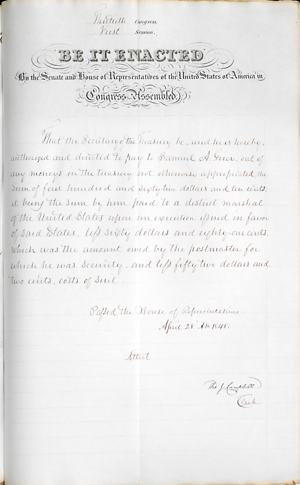 Thirtieth Congress
First Session
BE IT ENACTED
By the Senate and House of Representatives of the United States of America in
Congress Assembled,
That the Secretary of the Treasury be, and he is hereby,
authorized and directed to pay to Samuel A. Grier, out of
any moneys in the treasury not otherwise appropriated, the
sum of four hundred and sixty two dollars and ten cents;
it being the sum by him paid to a district marshal
of the United States upon an execution issued in favor
of said States, less sixty dollars and eighty-one cents,
which was the amount owed by the postmaster for
which he was security, and less fifty two dollars and
two cents, costs of suit.
Passed the House of Representatives
April 28th A.D. 1848.
Attest
Tho. J. Campbell
Clerk